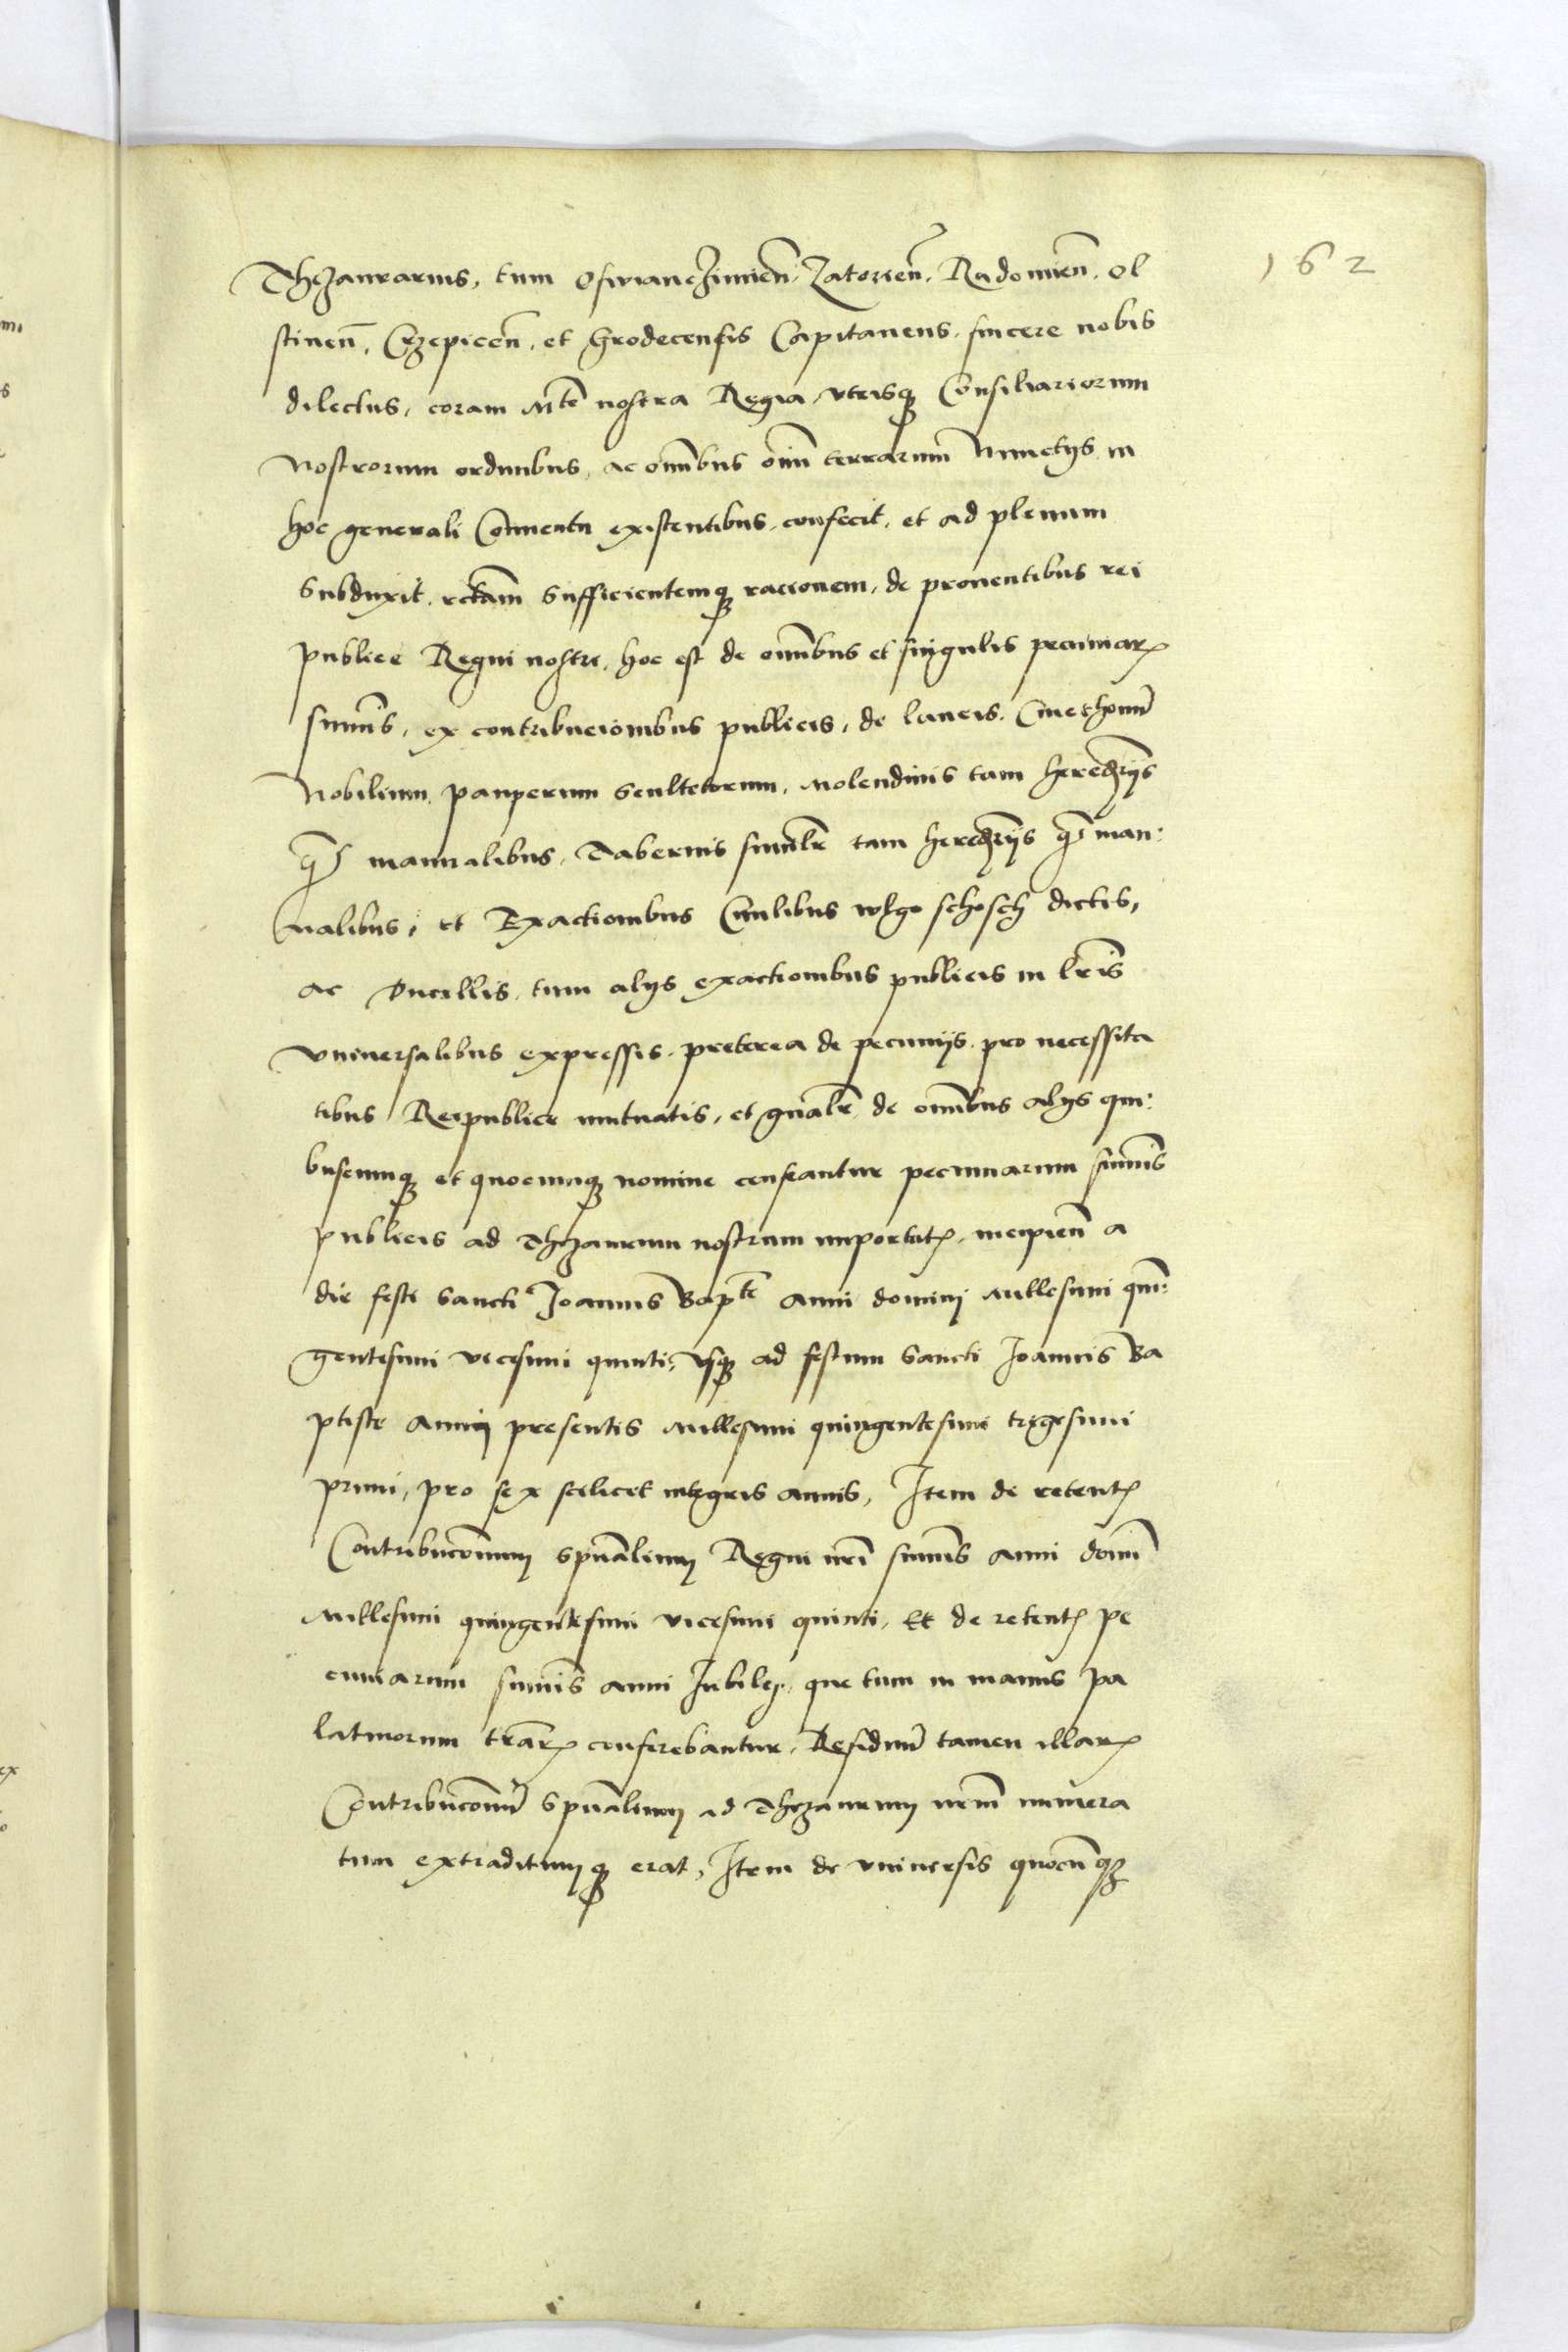 162
Thezaurarius, tum Osswianczimien̄. Zatorien̄. Radomien̄. Ol
stinen̄. Crzepicen̄. et Grodecensis Capitaneus. sincere nobis
dilectus, coram Mte nostra Regia, vtrisq3 Consiliariorum
nostrorum ordinibus, ac omībus oīm terrarum Nunctÿs in
hoc generali Conuentu existentibus confecit, et ad plenum
subduxit, rectam sufficientemq3 racionem, de prouentibus rei
publice Regni nostri, hoc est de omībus et singulis pecuniarꝝ
sum̄is, ex contribucionibus publicis, de laneis, Cmethonū
Nobilium pauperum scultetorum, Molendinis tam hered̄rÿs
q̄3 manualibus, Tabernis simil̄r tam hered̄rÿs q̄3 man:
ualibus, et Exactionibus Ciuilibus wlgo schosch dictis,
ac Ducillis, tum alÿs exactionibus publicis in l̄ris
vniuersalibus expressis. preterea de pecunÿs pro necessita
tibus Reipublice mutuatis, et gn̄al̄r de omībus alÿs qui:
buscumq3 et quocumq3 nomine censeantur pecuniarum sum̄is
publicis ad Thezaurum nostrum importatꝭ, incipien̄ a
die festi Sancti Joannis Bapte Anni domini Millesimi quin:
gentesimi vicesimi quinti, vsq3 ad festum Sancti Joannis Ba
ptiste Anni presentis Millesimi quingentesimi trigesimi
primi, pro sex scilicet integris annis, Item de retentꝭ
Contribuc̄onum sp̄ualium Regni n̄ri sum̄is anni domī
Millesimi quingentesimi vicesimi quinti, Et de retentꝭ pe
cuniarum sum̄is anni Jubilej, que tum in manus pa
latinorum tr̄arꝝ conferebantur, Residuū tamen illarꝝ
Contribuc̄onū sp̄ualium ad Thezaurum n̄rm numera
tum extraditumq3 erat, Item de vniuersis quocūq3